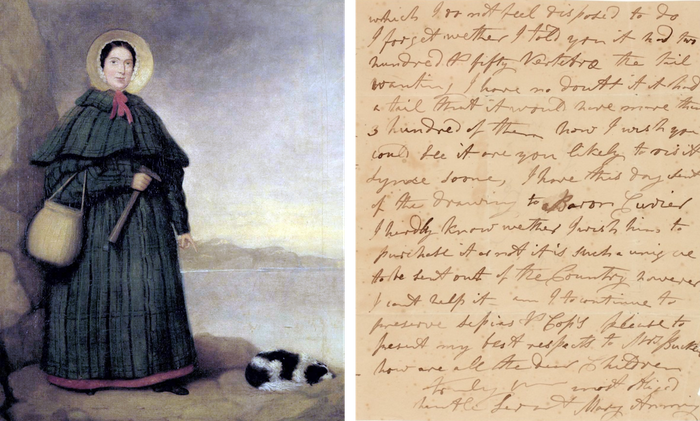 which I do not feel disposed to do
I forget wether I told you it had two
hundred & fifty Vertebra the tail
wanting, I have no doubt if it had
a tail that it would have more than
3 hundred of them now I wish you
could see it are you likely to visit
Lyme soone, I have this day sent
of the drawing to Baron Cuvier
I hardly know wether I wish him to
purchase it or not it is such a unique
to be sent out of the Country however
I cant help it am I to continue to
preserve sepias & Cop's please to
present my best respects to Mrs Buck
how are all the dear Children
most
Mary